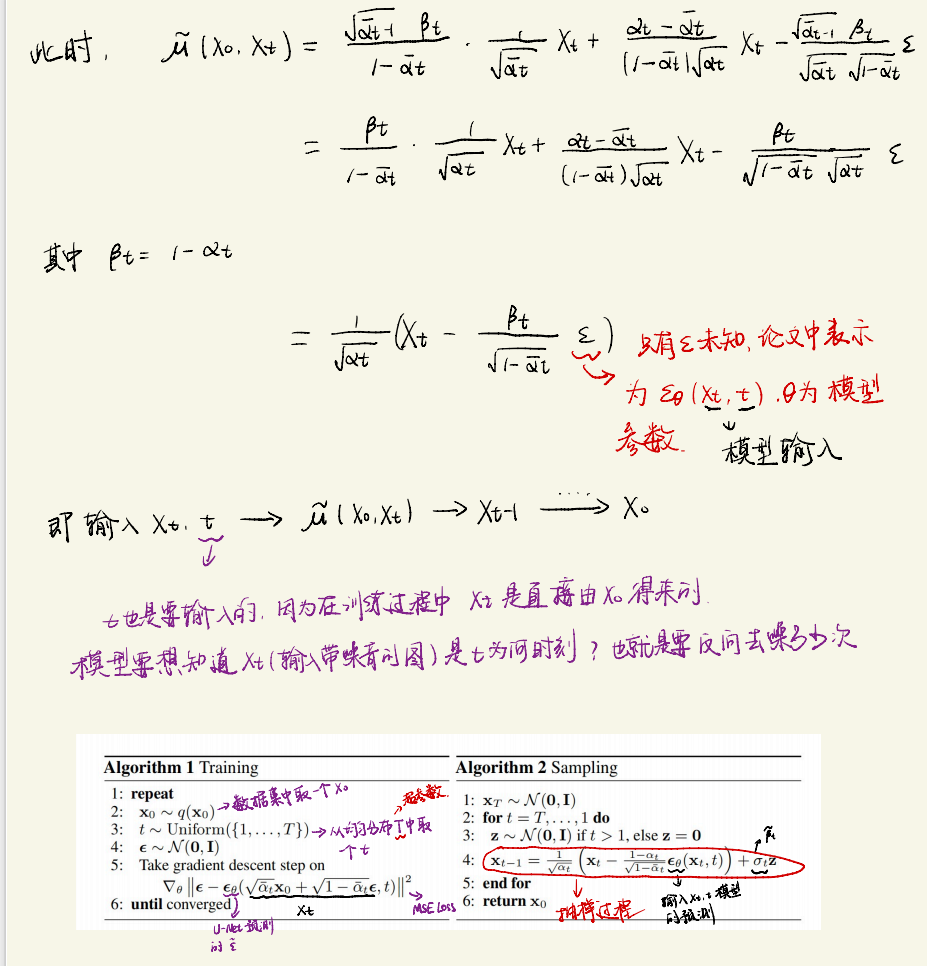 此时, μ̃(x₀, xₜ) = √ᾱt-1 βt / (1-ᾱt) · 1/√ᾱt Xt + (αt-ᾱt) / ((1-ᾱt)√αt) Xt - √ᾱt-1 βt / (√ᾱt √1-ᾱt) ε
= βt / (1-ᾱt) · 1/√αt Xt + (αt-ᾱt) / ((1-ᾱt)√αt) Xt - βt / (√1-ᾱt √αt) ε
其中 βt = 1-αt
= 1/√αt (Xt - βt / √1-ᾱt ε)
只有ε未知,论文中表示
为 εθ(xt, t). θ为模型
参数.
模型输入
即输入 Xt, t → μ̃(x₀,xt) → Xt-1 ····→ X₀
t也是要输入的,因为在训练过程中 Xt 是直接由X₀得来的.
模型要想知道 Xt(输入带噪音的图)是t为何时刻?也就是要反向去噪多少次
Algorithm 1 Training
1: repeat
2: x₀ ~ q(x₀) → 数据集中取一个X₀
超参数.
3: t ~ Uniform({1, . . . , T}) → 从均匀分布T中取
一个t
4: ϵ ~ N(0, I)
5: Take gradient descent step on
∇θ ‖ϵ − ϵθ(√ᾱt x₀ + √1 − ᾱt ϵ, t)‖²
6: until converged
Xt
MSE Loss
U-Net预测
的ε
Algorithm 2 Sampling
1: xT ~ N(0, I)
2: for t = T, . . . , 1 do
3: z ~ N(0, I) if t > 1, else z = 0
4: xt−1 = 1/√αt (xt − (1−αt)/√1−ᾱt ϵθ(xt, t)) + σt z
5: end for
6: return x₀
输入Xt, t 模型
的预测